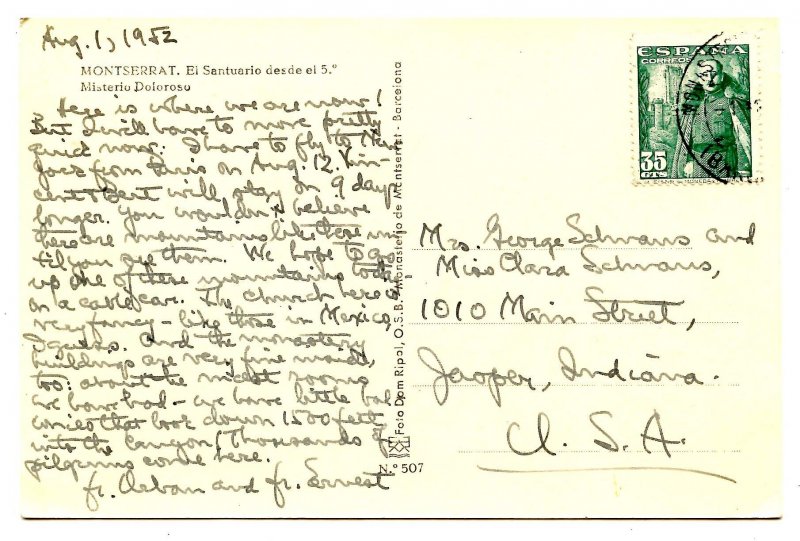 Aug. 1, 1952
MONTSERRAT. El Santuario desde el 5.º
Misterio Doloroso
Here is where we are now!
But I will have to move pretty
quick now. I have to fly to New
from Paris on Aug. 12. Vin-
cent & Bert will stay on 9 days
longer. You wouldn't believe
there are mountains like these un-
til you see them. We hope to go
up one of these mountains today
on a cable car. The church here is
very fancy - like those in Mexico,
I guess. And the monastery
buildings are very fine inside,
too: about the nicest rooms
we have had - we have little bal-
conies that look down 1500 feet
into the canyon! Thousands of
pilgrims come here.
fr. Urban and fr. Ernest
Foto Dom Ripol, O.S.B. Monasterio de Montserrat - Barcelona
N.º 507
ESPAÑA
CORREOS
35
CTS
Mrs. George Schwans and
Miss Clara Schwans,
1010 Main Street,
Jasper, Indiana.
U. S. A.